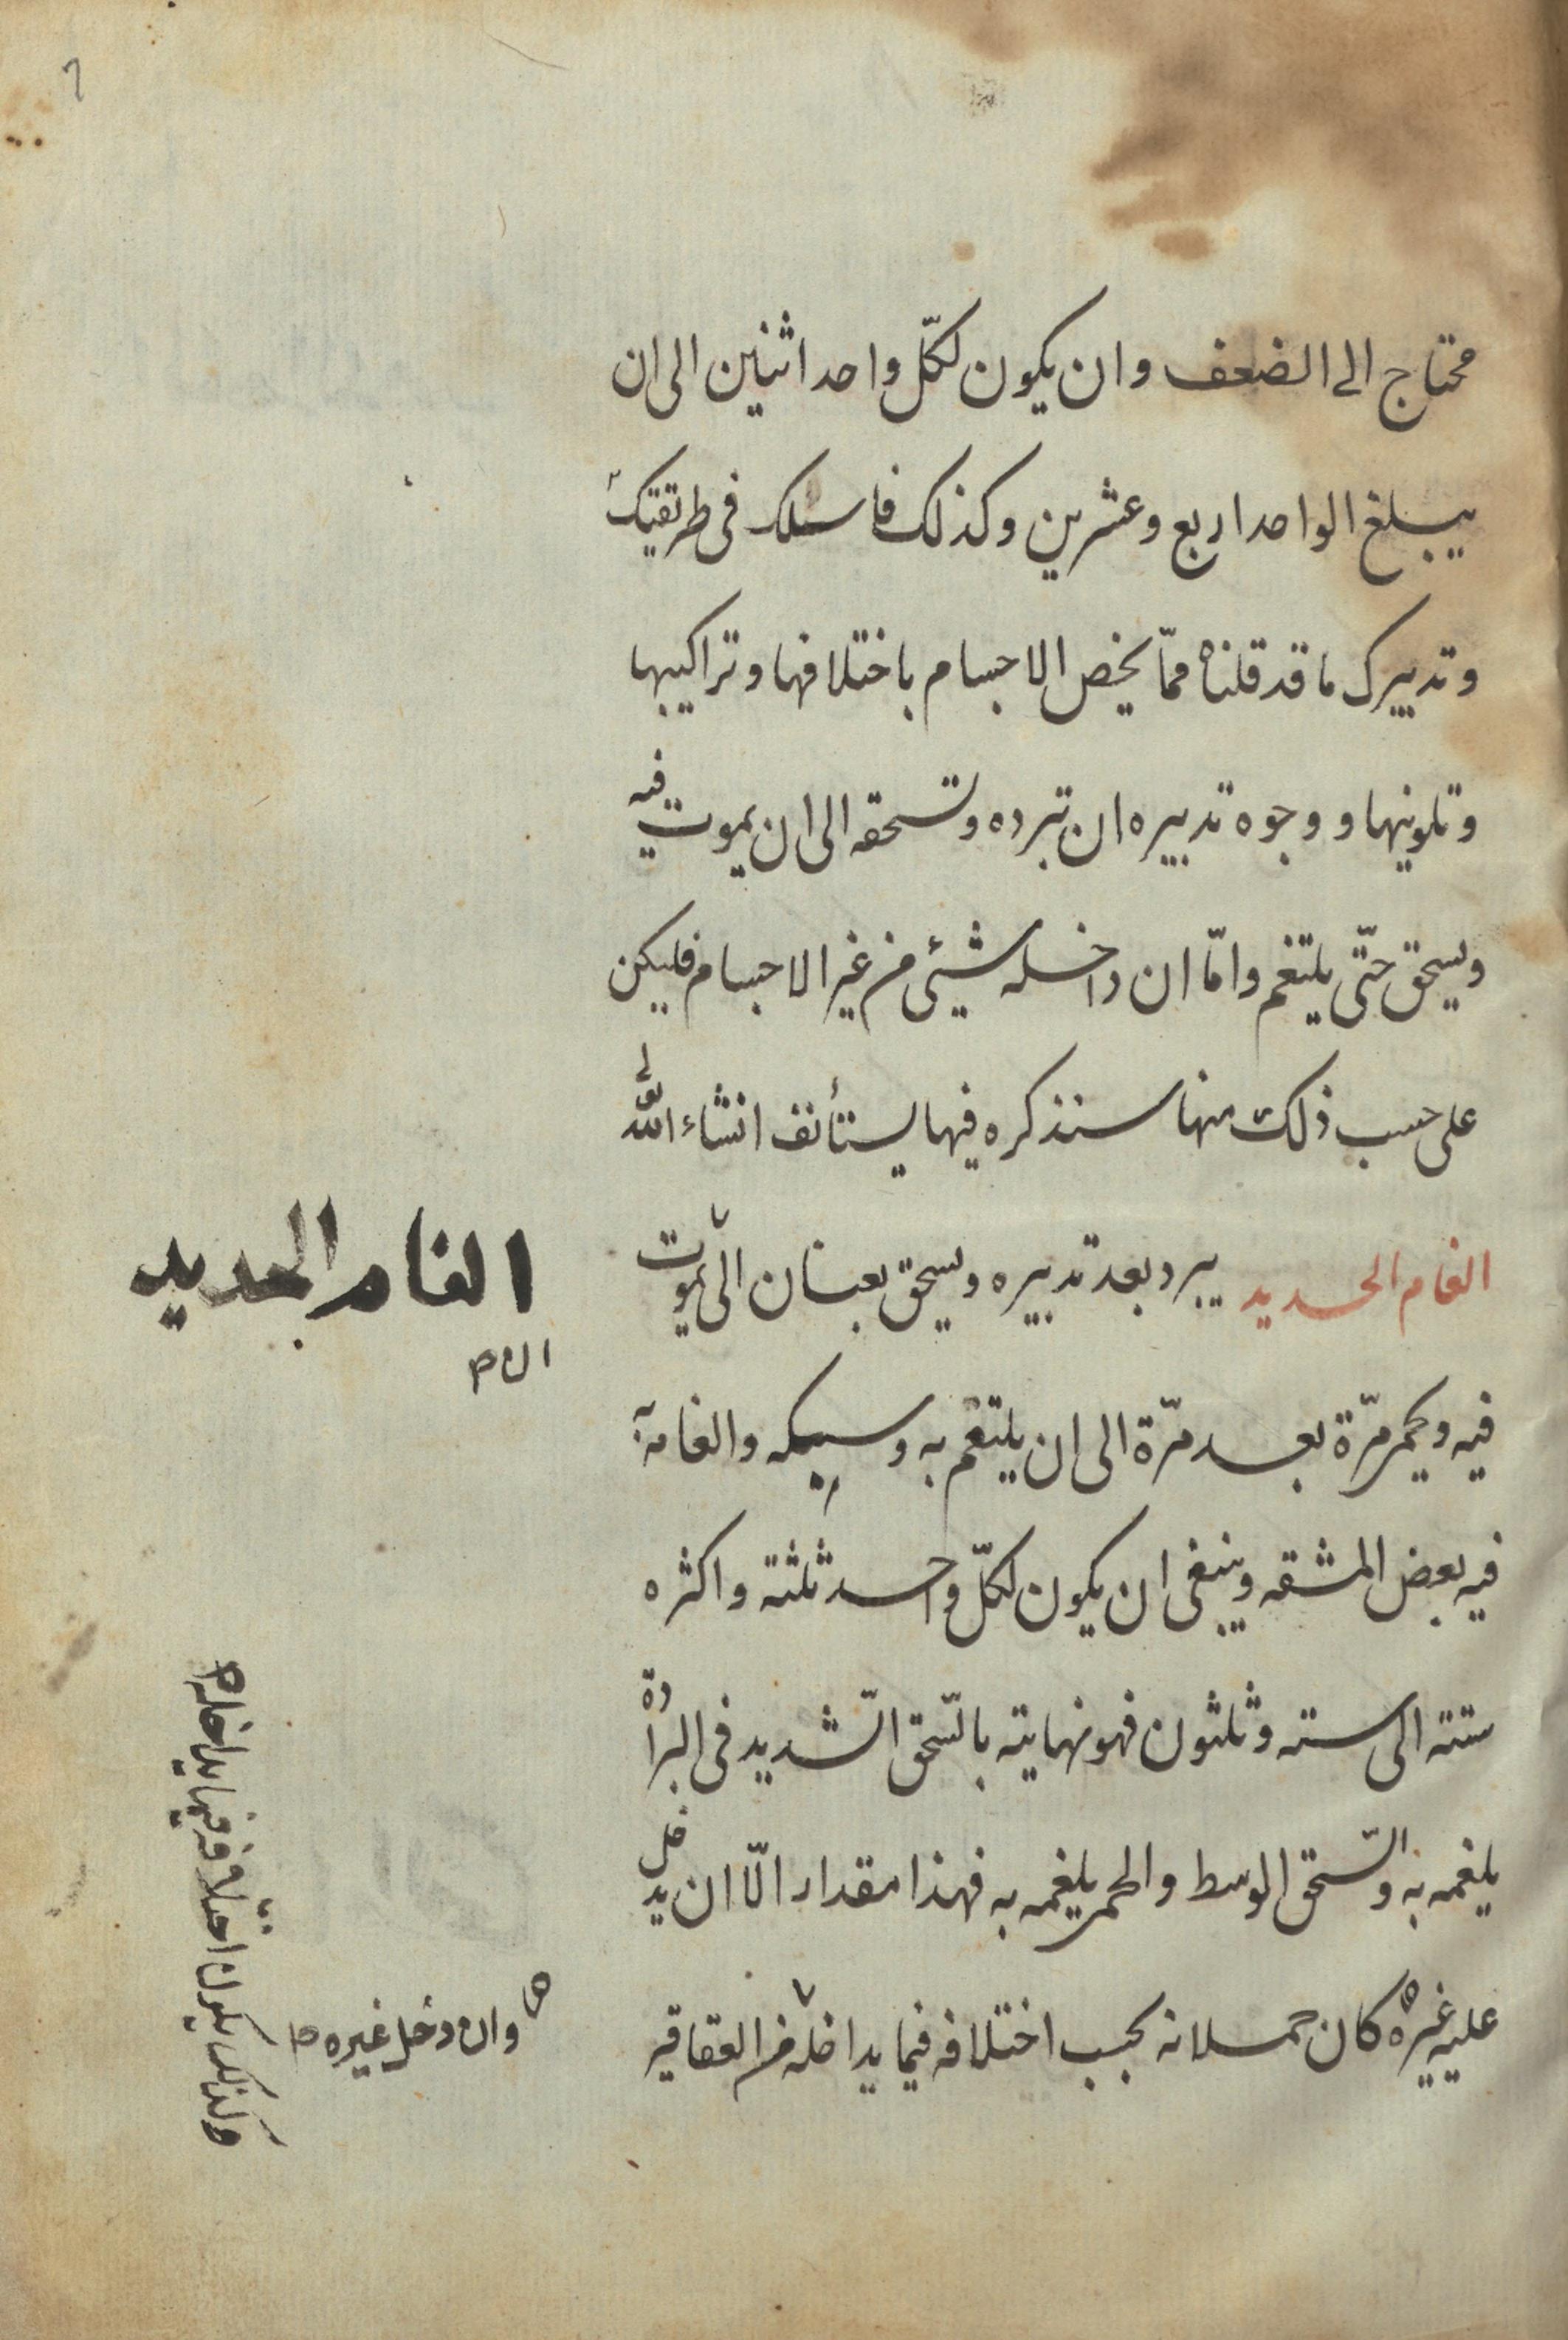 محتاج الى الضعف وان يكون لكلّ واحد اثنين الى ان
يبلغ الواحد اربع وعشرين وكذلك فاسلك فى طريقتك
وتدبيرك ما قد قلناه ممّا يخص الاجسام باختلافها وتراكيبها
وتلوينها ووجوه تدبيره ان تبرده وتسحقه الى ان يموت فيه
ويسحق حتّى يلتغم وامّا ان داخله شيئ من غير الاجسام فليكن
على حسب ذلك منها سنذكره فيما يستأنف انشاء اللّه تعالى
الغام الحديد يبرد بعد تدبيره ويسحق بعبنان الى يموت
فيه ويحمر مرّة بعد مرّة الى ان يلتغم به وسبكه والغامه
فيه بعض المشقه وينبغى ان يكون لكلّ واحد ثلثة واكثره
ستته الى سته وثلثون فهو نهايته بالسّحق الشّديد فى البرادة
يلغمه به والسّحق الوسط والحمر يلغمه به فهذا مقدار الّا ان يدخل
عليه غيره كان حملانه بحسب اختلافه فيما يداخله من العقاقير
الغام الحديد
ان
وان دخل غيره
وكذلك يكون اختلافه فيما يداخله